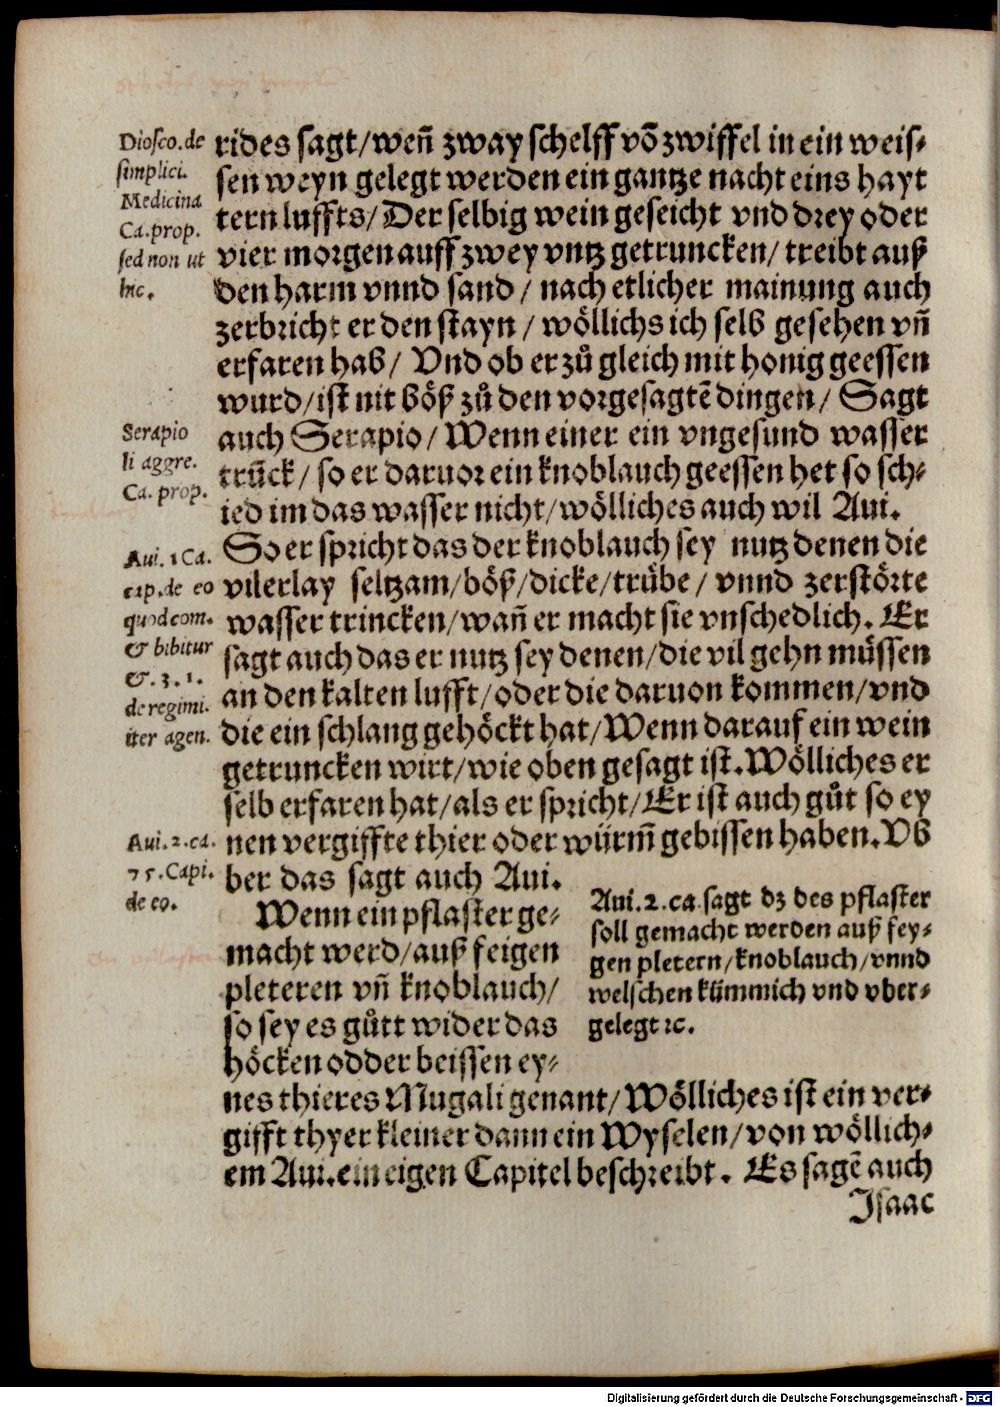 Diosco. de
simplici.
Medicina
Ca. prop.
sed non ut
hic.
rides sagt/ weñ zway schelff võ zwiffel in ein weis⸗
sen weyn gelegt werden ein gantze nacht eins hayt
tern luffts/ Der selbig wein geseicht vnd drey oder
vier morgen auff zwey vntz getruncken/ treibt auß
den harm vnnd sand / nach etlicher mainung auch
zerbricht er den stayn / wöllichs ich selb gesehen vñ
erfaren hab/ Vnd ob er zů gleich mit honig geessen
wurd/ ist nit böß zů den vorgesagtẽ dingen/ Sagt
Serapio
li aggre.
Ca. prop.
auch Serapio/ Wenn einer ein vngesund wasser
trũck/ so er daruor ein knoblauch geessen het so sch⸗
ied im das wasser nicht/ wölliches auch wil Aui.
Aui. 1 Ca.
cap. de eo
quod com.
& bibitur
&. 3. 1.
de regimi.
iter agen.
So er spricht das der knoblauch sey nutz denen die
vilerlay seltzam/ böß/ dicke/ trübe/ vnnd zerstörte
wasser trincken/ wañ er macht sie vnschedlich. Er
sagt auch das er nutz sey denen/ die vil gehn müssen
an den kalten lufft/ oder die daruon kommen/ vnd
die ein schlang gehöckt hat/ Wenn darauf ein wein
getruncken wirt/ wie oben gesagt ist. Wölliches er
selb erfaren hat/ als er spricht/ Er ist auch gůt so ey
Aui. 2. ca.
75. Capi.
de eo.
nen vergiffte thier oder würm̃ gebissen haben. Vb
ber das sagt auch Aui.
Wenn ein pflaster ge⸗
macht werd/ auß feigen
pleteren vñ knoblauch/
so sey es gůtt wider das
höcken odder beissen ey⸗
Aui. 2. ca. sagt dz des pflaster
soll gemacht werden auß fey⸗
gen pletern/ knoblauch/ vnnd
welschen kümmich vnd vber⸗
gelegt ꝛc.
nes thieres Mugali genant/ Wölliches ist ein ver⸗
gifft thyer kleiner dann ein Wyselen/ von wöllich⸗
em Aui. ein eigen Capitel beschreibt. Es sagẽ auch
Isaac
Digitalisierung gefördert durch die Deutsche Forschungsgemeinschaft - DFG